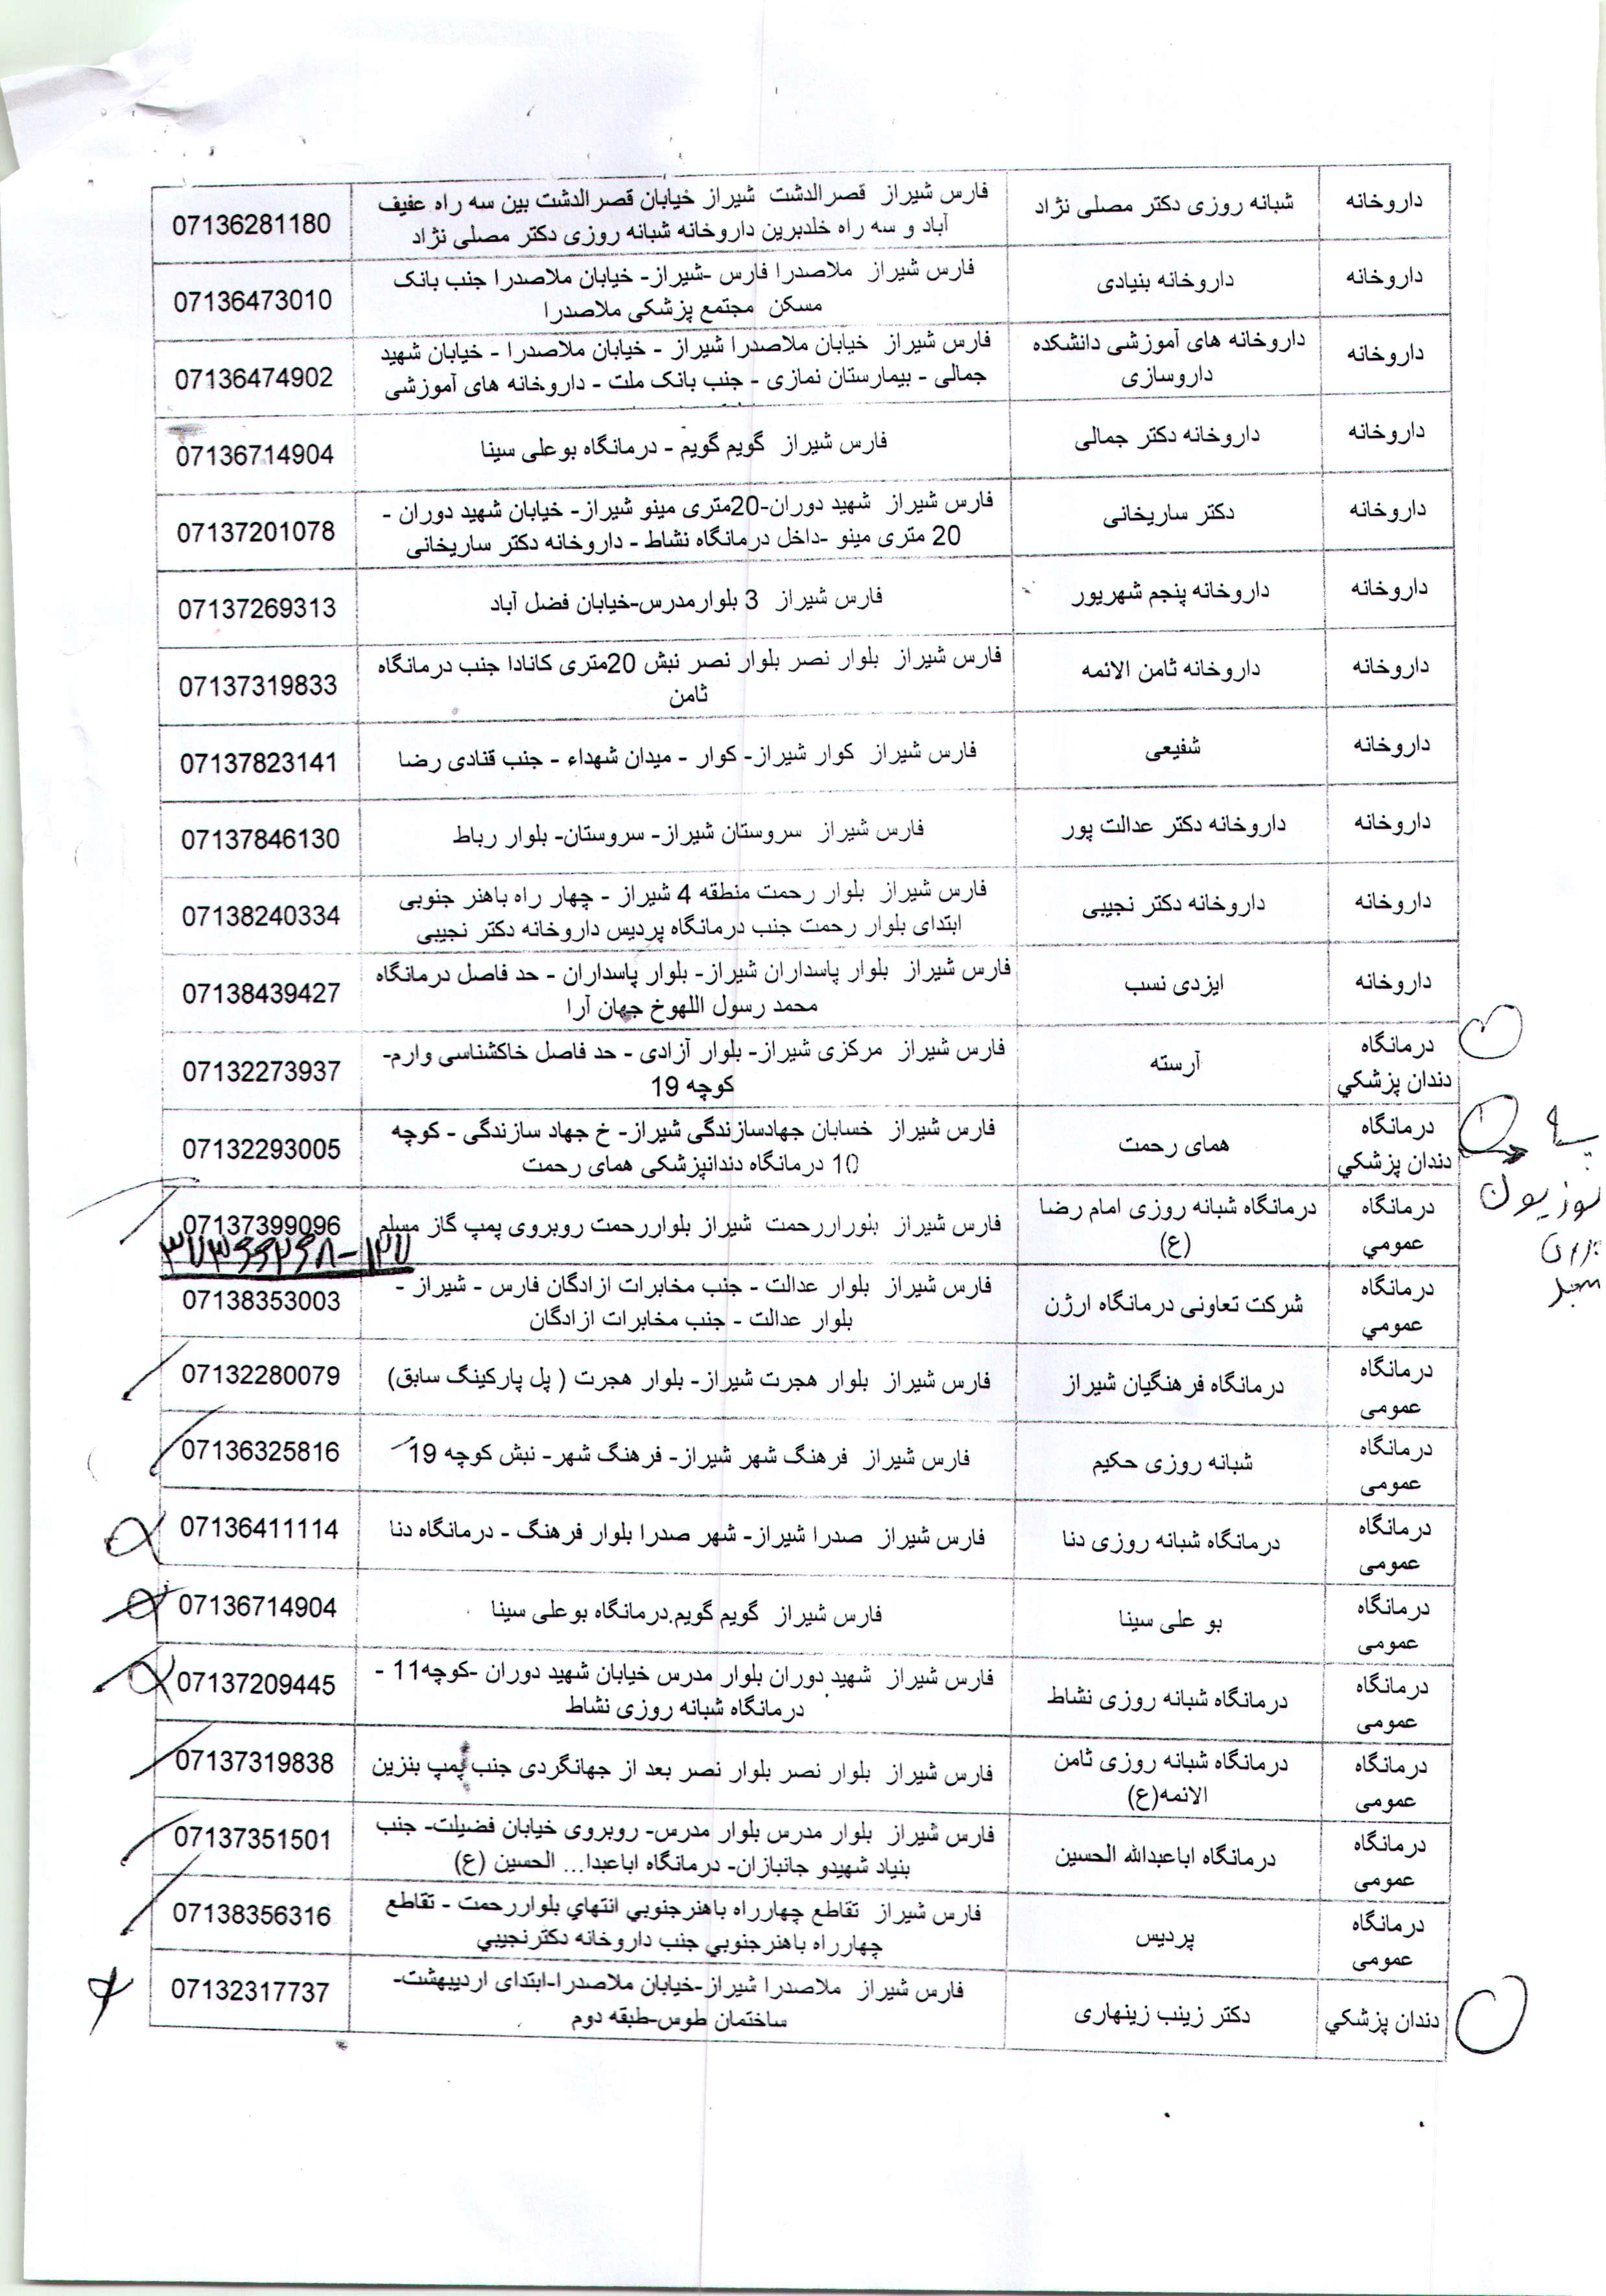 داروخانه شبانه روزی دکتر مصلی نژاد فارس شیراز قصرالدشت شیراز خیابان قصرالدشت بین سه راه عفیف 07136281180
آباد و سه راه خلدبرین داروخانه شبانه روزی دکتر مصلی نژاد
داروخانه داروخانه بنیادی فارس شیراز ملاصدرا فارس -شیراز- خیابان ملاصدرا جنب بانک 07136473010
مسکن مجتمع پزشکی ملاصدرا
داروخانه داروخانه های آموزشی دانشکده فارس شیراز خیابان ملاصدرا شیراز - خیابان ملاصدرا - خیابان شهید 07136474902
داروسازی جمالی - بیمارستان نمازی - جنب بانک ملت - داروخانه های آموزشی
داروخانه داروخانه دکتر جمالی فارس شیراز گویم گویم - درمانگاه بوعلی سینا 07136714904
داروخانه دکتر ساریخانی فارس شیراز شهید دوران-20متری مینو شیراز- خیابان شهید دوران - 07137201078
20 متری مینو -داخل درمانگاه نشاط - داروخانه دکتر ساریخانی
داروخانه داروخانه پنجم شهریور فارس شیراز 3 بلوارمدرس-خیابان فضل آباد 07137269313
داروخانه داروخانه ثامن الائمه فارس شیراز بلوار نصر بلوار نصر نبش 20متری کانادا جنب درمانگاه 07137319833
ثامن
داروخانه شفیعی فارس شیراز کوار شیراز- کوار - میدان شهداء - جنب قنادی رضا 07137823141
داروخانه داروخانه دکتر عدالت پور فارس شیراز سروستان شیراز- سروستان- بلوار رباط 07137846130
داروخانه داروخانه دکتر نجیبی فارس شیراز بلوار رحمت منطقه 4 شیراز - چهار راه باهنر جنوبی 07138240334
ابتدای بلوار رحمت جنب درمانگاه پردیس داروخانه دکتر نجیبی
داروخانه ایزدی نسب فارس شیراز بلوار پاسداران شیراز- بلوار پاسداران - حد فاصل درمانگاه 07138439427
محمد رسول اللهوخ جهان آرا
درمانگاه آرسته فارس شیراز مرکزی شیراز- بلوار آزادی - حد فاصل خاکشناسی وارم- 07132273937
دندان پزشکي کوچه 19
درمانگاه همای رحمت فارس شیراز خسابان جهادسازندگی شیراز- خ جهاد سازندگی - کوچه 07132293005
دندان پزشکي 10 درمانگاه دندانپزشکی همای رحمت
درمانگاه درمانگاه شبانه روزی امام رضا فارس شیراز بلوراررحمت شیراز بلواررحمت روبروی پمپ گاز مسلم 07137399096
عمومي (ع)
درمانگاه شرکت تعاونی درمانگاه ارژن فارس شیراز بلوار عدالت - جنب مخابرات ازادگان فارس - شیراز - 07138353003
عمومي بلوار عدالت - جنب مخابرات ازادگان
درمانگاه درمانگاه فرهنگیان شیراز فارس شیراز بلوار هجرت شیراز- بلوار هجرت ( پل پارکینگ سابق) 07132280079
عمومی
درمانگاه شبانه روزی حکیم فارس شیراز فرهنگ شهر شیراز- فرهنگ شهر- نبش کوچه 19 07136325816
عمومی
درمانگاه درمانگاه شبانه روزی دنا فارس شیراز صدرا شیراز- شهر صدرا بلوار فرهنگ - درمانگاه دنا 07136411114
عمومی
درمانگاه بو علی سینا فارس شیراز گویم گویم.درمانگاه بوعلی سینا 07136714904
عمومی
درمانگاه درمانگاه شبانه روزی نشاط فارس شیراز شهید دوران بلوار مدرس خیابان شهید دوران -کوچه11 - 07137209445
عمومی درمانگاه شبانه روزی نشاط
درمانگاه درمانگاه شبانه روزی ثامن فارس شیراز بلوار نصر بلوار نصر بعد از جهانگردی جنب پمپ بنزین 07137319838
عمومی الائمه(ع)
درمانگاه درمانگاه اباعبدالله الحسین فارس شیراز بلوار مدرس بلوار مدرس- روبروی خیابان فضیلت- جنب 07137351501
عمومی بنیاد شهیدو جانبازان- درمانگاه اباعبدا... الحسین (ع)
درمانگاه پردیس فارس شیراز تقاطع چهارراه باهنرجنوبي انتهاي بلواررحمت - تقاطع 07138356316
عمومی چهارراه باهنرجنوبي جنب داروخانه دکترنجیبي
دندان پزشکي دکتر زینب زینهاری فارس شیراز ملاصدرا شیراز-خیابان ملاصدرا-ابتدای اردیبهشت- 07132317737
ساختمان طوس-طبقه دوم